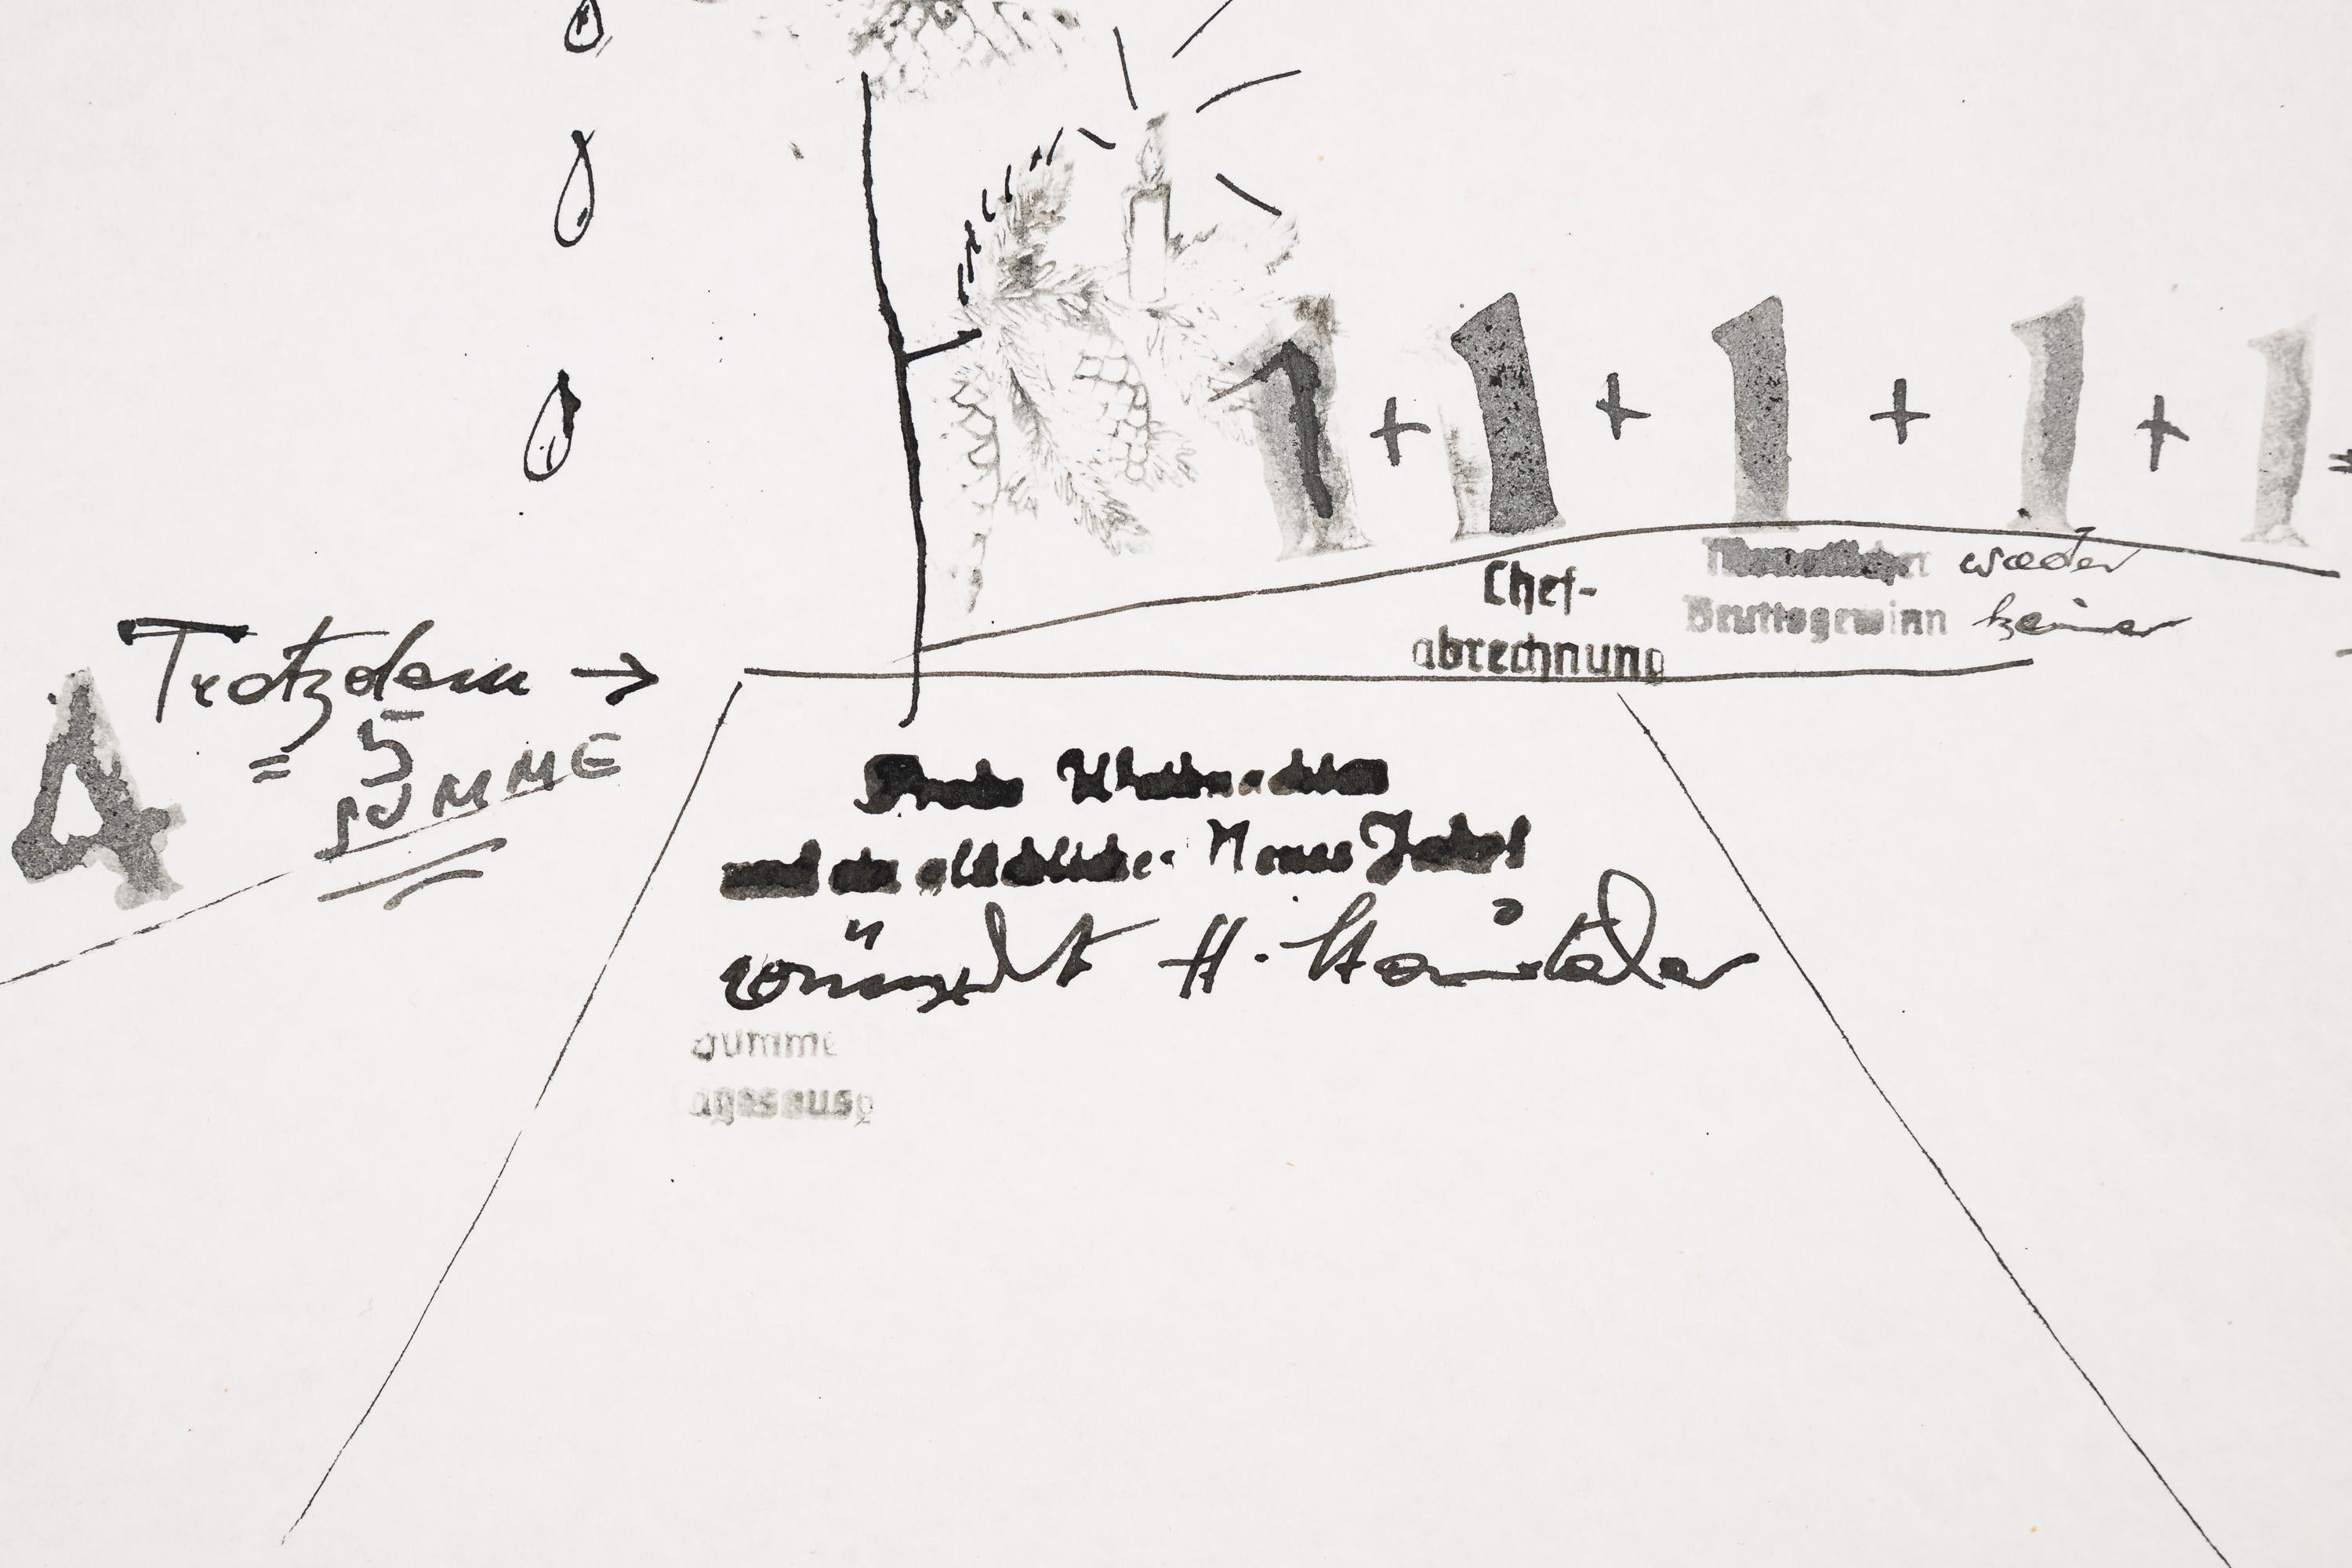 1 + 1 + 1 + 1 + 1 =
Chef-
abrechnung
wieder
Bruttogewinn keiner
Trotzdem →
4 = 5
SUMME
Frohe Weihnachten
und ein glückliches Neues Jahr!
wünscht H.
summe
agesausg